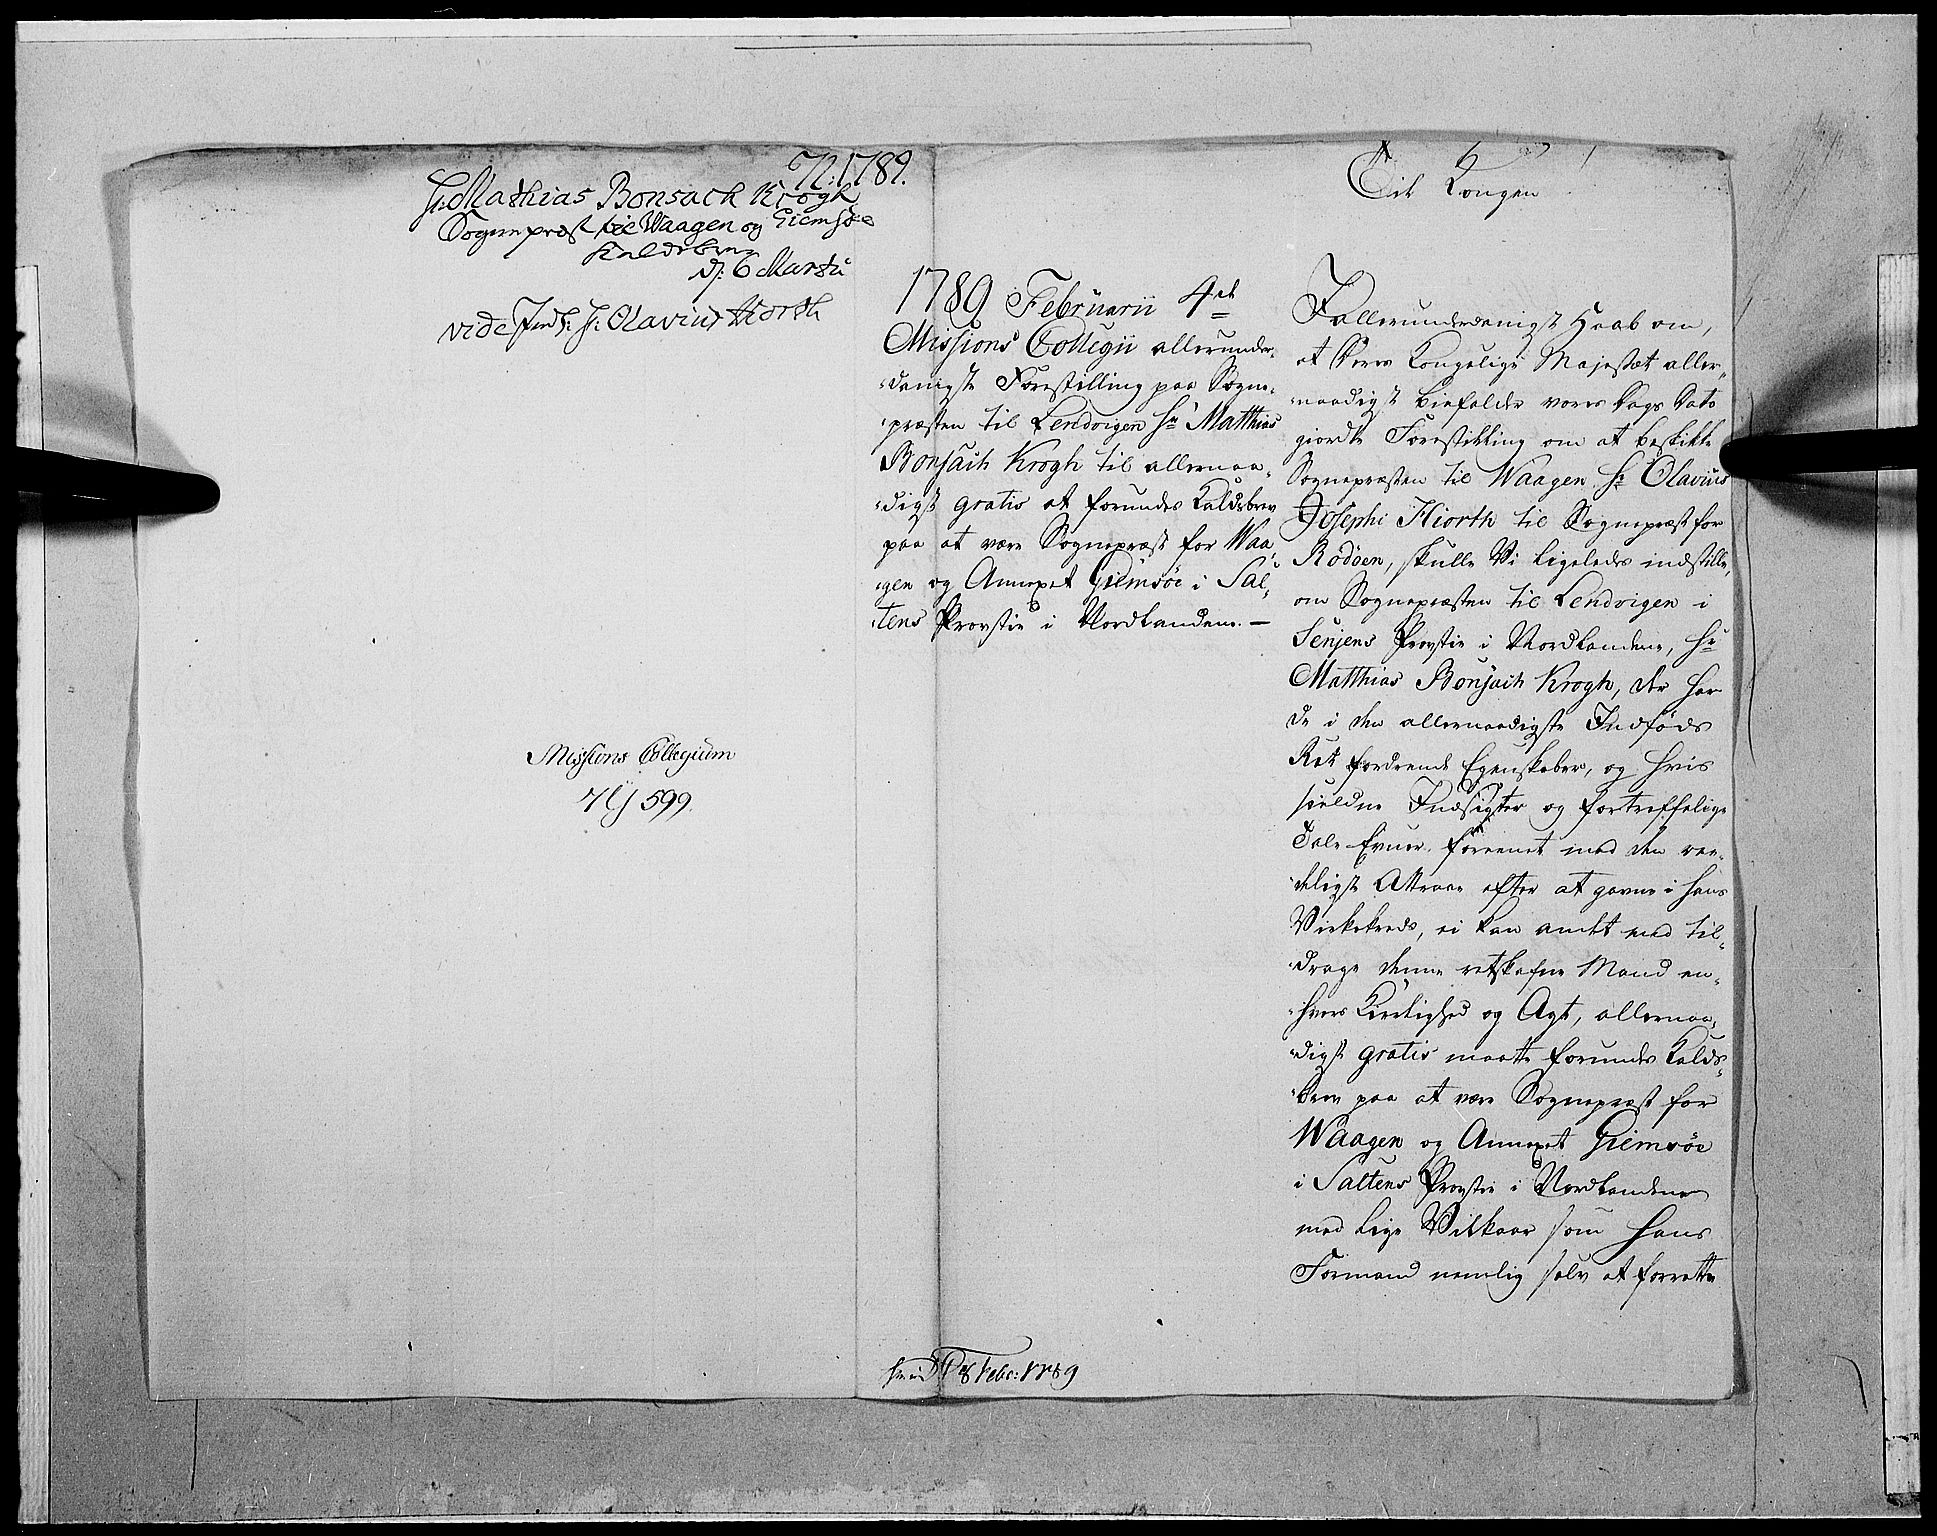 N: 1789.
H: Mathias Bonsach Krogh
Sogne præst til Waagen og Giemsøe
Kaldsbrev
d: 6 Martii
vide H: Olavius Hiorth
Missions Collegium
599.
1789 Februarii 4de
Missions Collegii allerunder-
danigste Forestilling paa Sogne-
præsten til Lendvigen Hr Matthias
Bonsach Krogh til allernaa-
digst gratis at forundes Kaldsbrev
paa at være Sognepræst for Waa-
gen og Annexet Giemsöe i Sal-
tens Provstie i Nordlandene. —
8 Febr: 1789
Til Kongen
I allerunderdanigst Haab om,
at Deres Kongelige Majestæt aller-
naadigst biefalder vores Dags Dato
giordte Forestilling om at beskikke
Sognepræsten til Waagen Hr Olavius
Josephi Hiorth til Sognepræst for
Rödöen, skulle Vi ligeledes indstille,
om Sognepræsten til Lendvigen i
Senjens Provstie i Nordlandene, Hr
Matthias Bonsach Krogh, der har
de i den allernaadigste Indføds
Ret fordrende Egenskaber, og hvis
sieldne Indsigter og fortreffelige
Tale-Evner foreenet med den roe-
deligste Attraae efter at gavne i hans
Virkekreds, ei kan andet end til-
drage denne retskafne Mand en-
hvers Kierlighed og Agt, allernaa-
digst gratis maatte forundes Kalds-
brev paa at være Sognepræst for
Waagen og Annexet Giemsöe
i Saltens Provstie i Nordlandene
med lige Vilkaar som hans
Formand nemlig selv at forrette